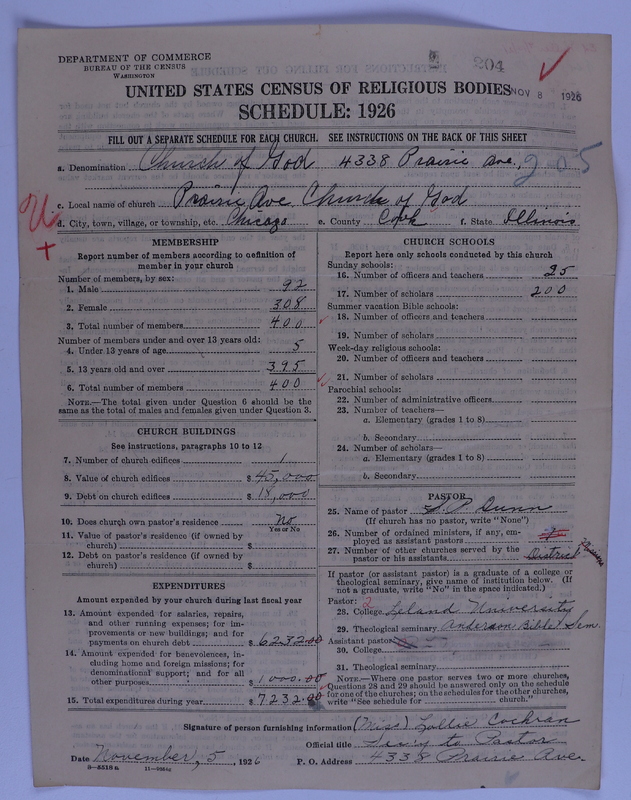 DEPARTMENT OF COMMERCE
BUREAU OF THE CENSUS
WASHINGTON
204
UNITED STATES CENSUS OF RELIGIOUS BODIES
NOV 8 1926
SCHEDULE: 1926
FILL OUT A SEPARATE SCHEDULE FOR EACH CHURCH. SEE INSTRUCTIONS ON THE BACK OF THIS SHEET
a. Denomination Church of God 4338 Prairie Ave. 205
c. Local name of church Prairie Ave. Church of God
d. City, town, village, or township, etc. Chicago e. County Cook f. State Illinois
MEMBERSHIP
Report number of members according to definition of
member in your church
Number of members, by sex:
1. Male 92
2. Female 308
3. Total number of members 400
Number of members under and over 13 years old:
4. Under 13 years of age 5
5. 13 years old and over 395
6. Total number of members 400
NOTE.—The total given under Question 6 should be the
same as the total of males and females given under Question 3.
CHURCH BUILDINGS
See instructions, paragraphs 10 to 12
7. Number of church edifices 1
8. Value of church edifices $ 45,000
9. Debt on church edifices $ 18,000
10. Does church own pastor's residence No
Yes or No
11. Value of pastor's residence (if owned by
church) $
12. Debt on pastor's residence (if owned by
church) $
EXPENDITURES
Amount expended by your church during last fiscal year
13. Amount expended for salaries, repairs,
and other running expenses; for im-
provements or new buildings; and for
payments on church debt $ 6232.00
14. Amount expended for benevolences, in-
cluding home and foreign missions; for
denominational support; and for all
other purposes $ 1000.00
15. Total expenditures during year $ 7232.00
CHURCH SCHOOLS
Report here only schools conducted by this church
Sunday schools:
16. Number of officers and teachers 25
17. Number of scholars 200
Summer vacation Bible schools:
18. Number of officers and teachers
19. Number of scholars
Week-day religious schools:
20. Number of officers and teachers
21. Number of scholars
Parochial schools:
22. Number of administrative officers
23. Number of teachers—
a. Elementary (grades 1 to 8)
b. Secondary
24. Number of scholars—
a. Elementary (grades 1 to 8)
b. Secondary
PASTOR
25. Name of pastor S. P. Dunn
(If church has no pastor, write "None")
26. Number of ordained ministers, if any, em-
ployed as assistant pastors
27. Number of other churches served by the
pastor or his assistants District
If pastor (or assistant pastor) is a graduate of a college or
theological seminary, give name of institution below. (If
not a graduate, write "No" in the space indicated.)
Pastor: 2
28. College Leland University
29. Theological seminary Anderson Bible Sem.
Assistant pastor:
30. College
31. Theological seminary
NOTE.—Where one pastor serves two or more churches,
Questions 28 and 29 should be answered only on the schedule
for one of the churches; on the schedules for the other churches,
write "See schedule for church."
Signature of person furnishing information (Miss) Zollie Cochran
Official title Sec'y to Pastor
Date November, 5, 1926 P. O. Address 4338 Prairie Ave.